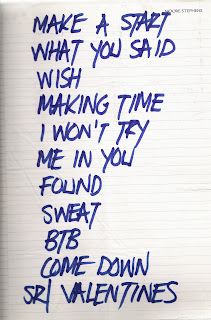 MOORE STEPHENS
MAKE A START
WHAT YOU SAID
WISH
MAKING TIME
I WON'T TRY
ME IN YOU
FOUND
SWEAT
BTB
COME DOWN
SR/ VALENTINES